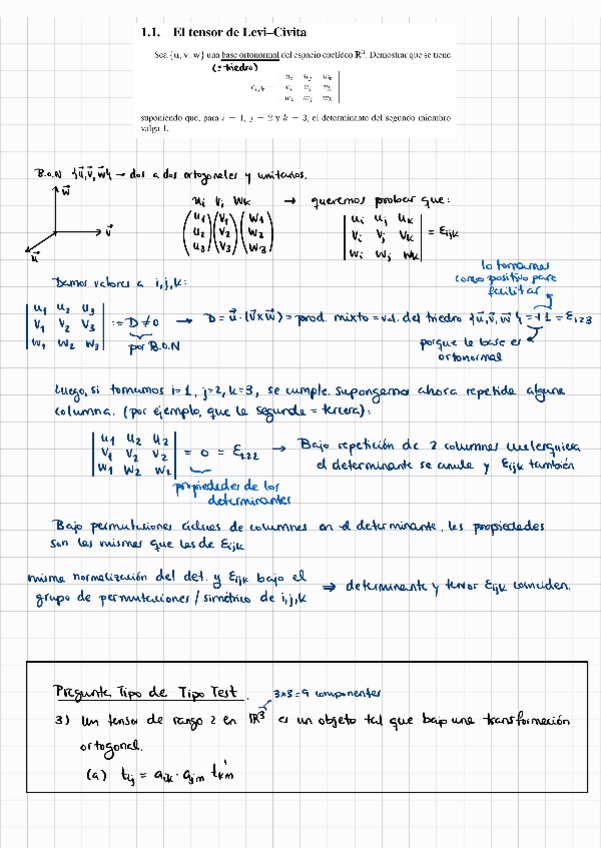 1.1. El tensor de Levi–Civita
Sea {u, v, w} una base ortonormal del espacio euclídeo R³. Demostrar que se tiene
(=triedro)
εijk =
ui uj uk
vi vj vk
wi wj wk
suponiendo que, para i = 1, j = 2 y k = 3, el determinante del segundo miembro
valga 1.
B.O.N {u⃗,v⃗,w⃗} → dos a dos ortogonales y unitarios.
w⃗
v⃗
u⃗
ui vj wk → queremos probar que:
(u1 u2 u3) (v1 v2 v3) (w1 w2 w3)
|ui uj uk|
|vi vj vk| = εijk
|wi wj wk|
lo tomamos
como positivo para
facilitar
Damos valores a i,j,k:
|u1 u2 u3|
|v1 v2 v3| := D ≠ 0 → D = u⃗·(v⃗×w⃗) = prod. mixto = vol. del triedro {u⃗,v⃗,w⃗} = +1 = ε123
|w1 w2 w3|
por B.O.N
porque la base es
ortonormal
Luego, si tomamos i=1, j=2, k=3, se cumple. Supongamos ahora repetida alguna
columna. (por ejemplo, que la segunda = tercera):
|u1 u2 u2|
|v1 v2 v2| = 0 = ε122 → Bajo repetición de 2 columnas cualesquiera
|w1 w2 w2| el determinante se anula y εijk también
propiedades de los
determinantes
Bajo permutaciones cíclicas de columnas en el determinante, las propiedades
son las mismas que las de εijk
misma normalización del det. y εijk bajo el
grupo de permutaciones / simétrico de i,j,k ⇒ determinante y tensor εijk coinciden.
Pregunta Tipo de Tipo Test.
3×3=9 componentes
3) Un tensor de rango 2 en ℝ³ es un objeto tal que bajo una transformación
ortogonal.
(a) tij = aik · ajm t'km